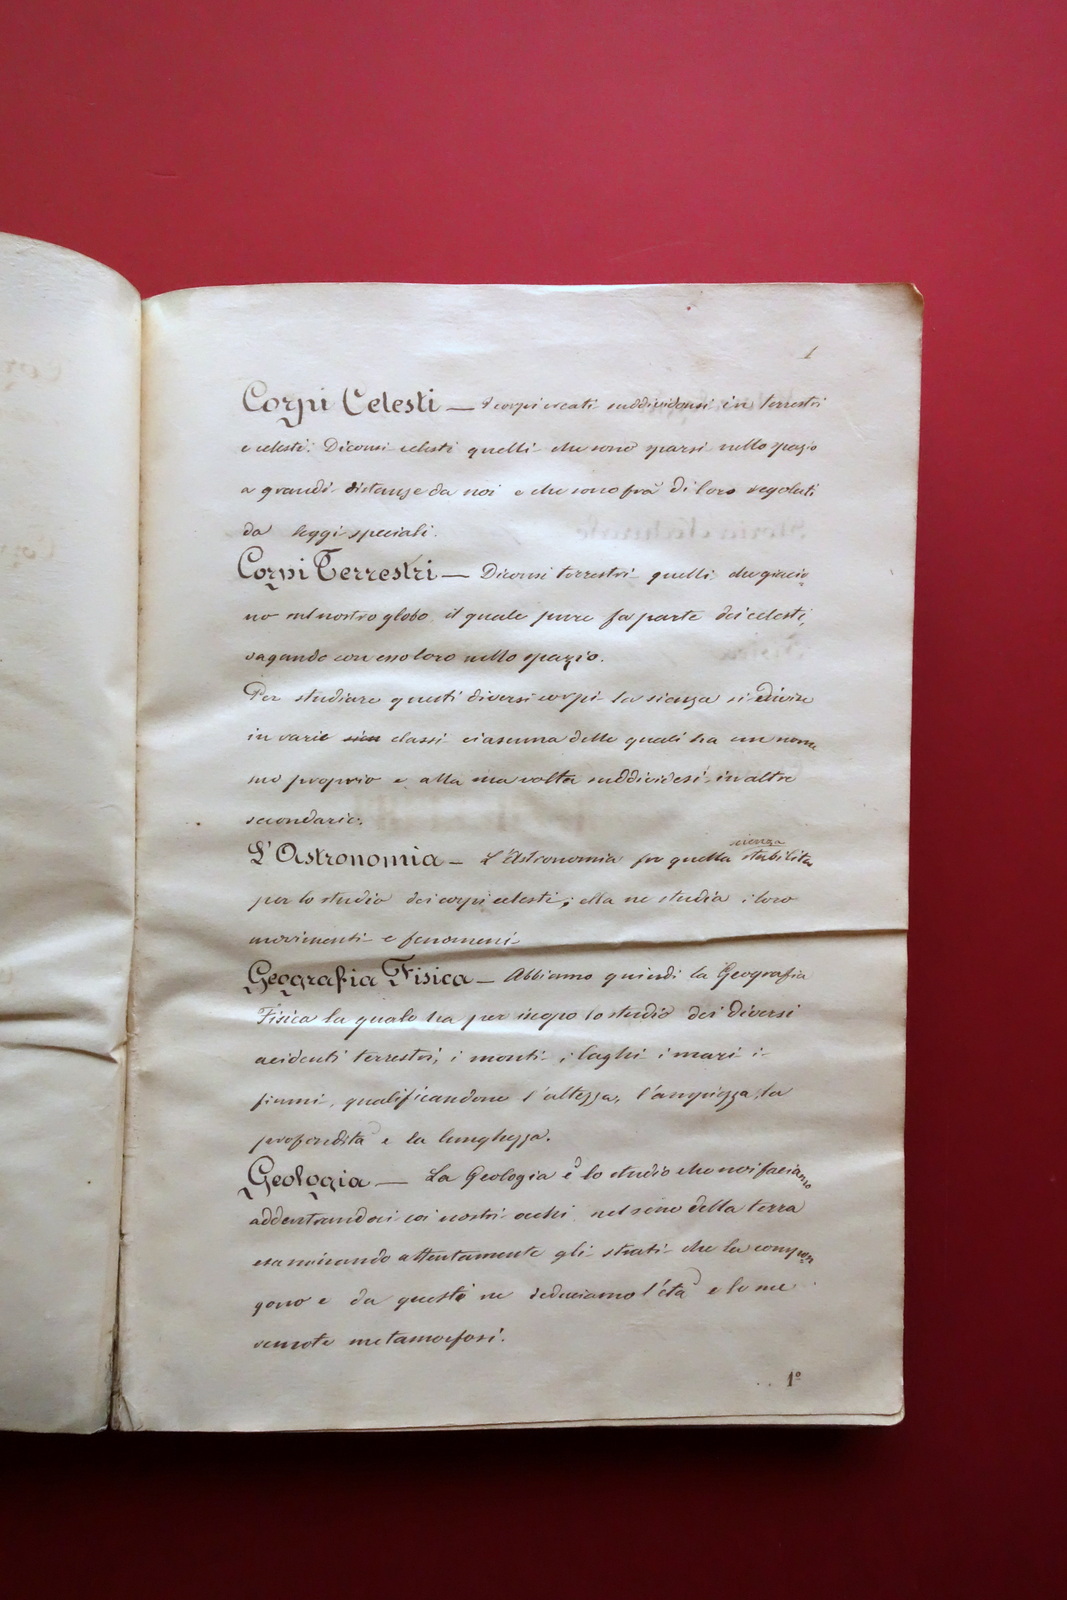 1
Corpi Celesti — I corpi creati suddividonsi in terrestri
e celesti. Diconsi celesti quelli che sono sparsi nello spazio
a grandi distanze da noi e che sono frà di loro regolati
da leggi speciali.
Corpi Terrestri — Diconsi terrestri quelli che giacio=
no sul nostro globo il quale pure fa parte dei celesti,
vagando con esso loro nello spazio.
Per studiare questi diversi corpi la sienza si divise
in varie classi ciascuna delle quali ha un nome
suo proprio e alla sua volta suddividesi in altre
secondarie.
L'Astronomia — L'Astronomia fu quella sienza stabilita
per lo studio dei corpi celesti; ella ne studia i loro
movimenti e fenomeni
Geografia Fisica — Abbiamo quindi la Geografia
Fisica la quale ha per iscopo lo studio dei diversi
acidenti terrestri, i monti i laghi i mari i
fiumi, qualificandone l'altezza, l'ampiezza, la
profondità e la lunghezza.
Geologia — La Geologia è lo studio che noi faciamo
addentrandoci coi nostri occhi nel seno della terra
esaminando attentamente gli strati che la compon=
gono e da questi ne deduciamo l'età e le sue
remote metamorfosi.
1º